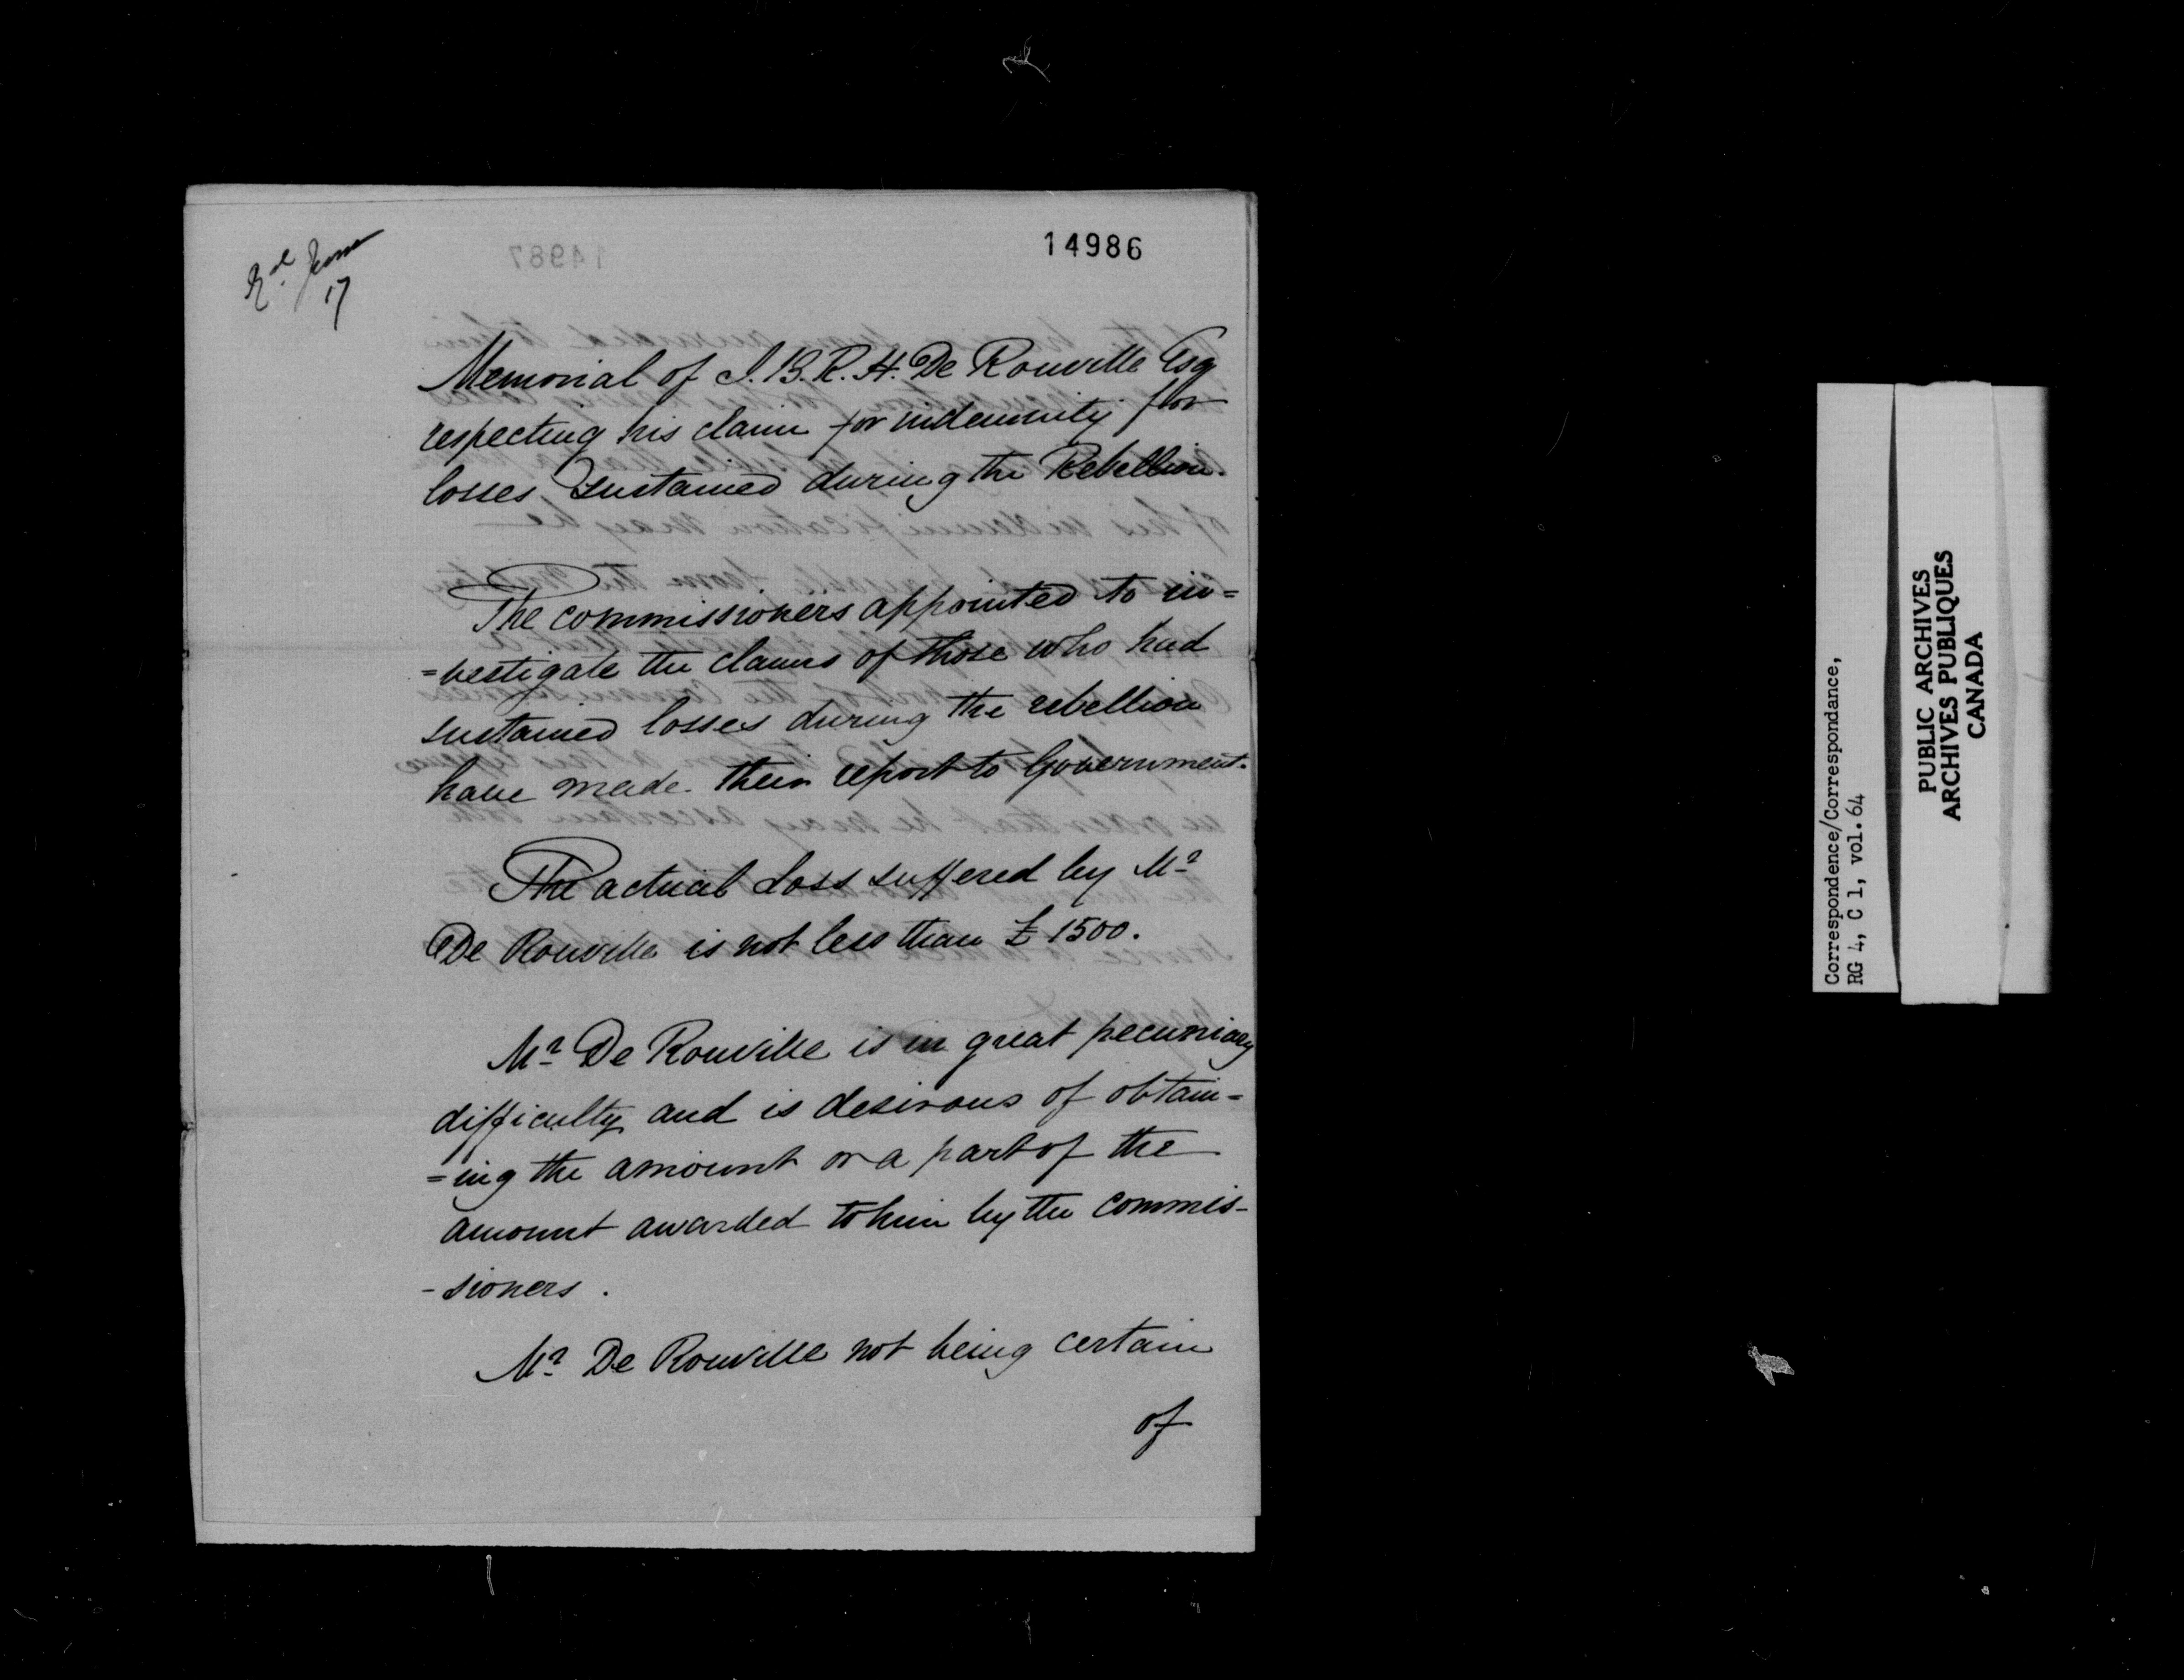 14986
Memorial of J. B. R. H. De Rouville Esq
respecting his claim for indemnity for
losses sustained during the Rebellion.
The commissioners appointed to in=
=vestigate the claims of those who had
sustained losses during the rebellion
have made their report to Government.
The actual loss suffered by Mr
De Rouville is not less than £ 1500.
Mr De Rouville is in great pecuniary
difficulty and is desirous of obtain=
=ing the amount or a part of the
amount awarded to him by the commis-
-sioners.
Mr De Rouville not being certain
of
Correspondence/Correspondance,
RG 4, C 1, vol. 64
PUBLIC ARCHIVES
ARCHIVES PUBLIQUES
CANADA